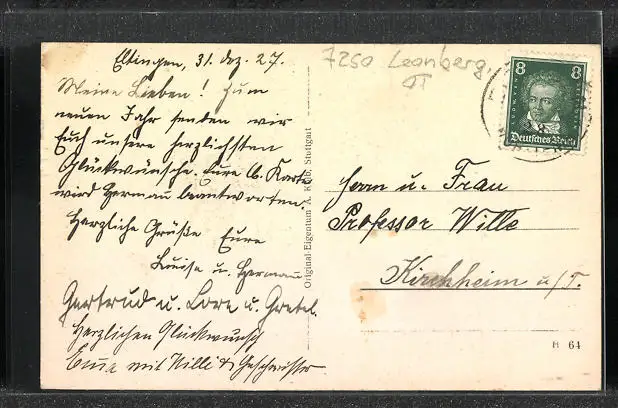 Eltingen, 31. Dez. 27.
Meine Lieben! Zum
neuen Jahr senden wir
Euch unsere herzlichsten
Glückwünsche. Eure lb. Karte
wird Herman beantworten.
Herzliche Grüße Eure
Luise u. Herman
Gertrud u. Lore u. Gretel.
Herzlichen Glückwunsch
Emma mit Willi & Geschwister
Original-Eigentum A. Kolb, Stuttgart
7250 Leonberg,
8 8
Deutsches Reich
Herrn u. Frau
Professor Wille
Kirchheim u/T.
H 64